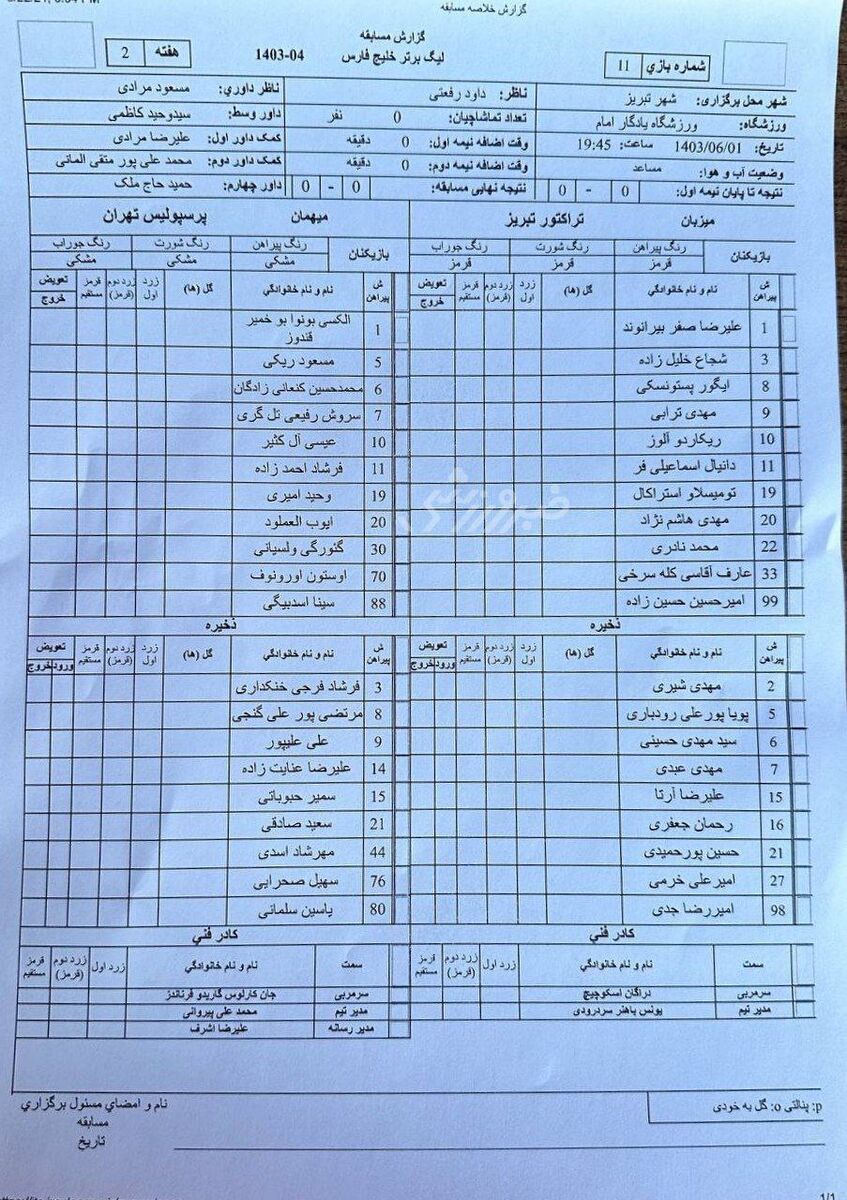 گزارش خلاصه مسابقه
گزارش مسابقه
لیگ برتر خلیج فارس 04-1403
شماره بازي 11
هفته 2
شهر محل برگزاری: شهر تبریز
ناظر: داود رفعتی
ناظر داوري: مسعود مرادی
ورزشگاه: ورزشگاه یادگار امام
تعداد تماشاچیان: 0 نفر
داور وسط: سیدوحید کاظمی
تاریخ: 1403/06/01 ساعت: 19:45
وقت اضافه نیمه اول: 0 دقیقه
کمک داور اول: علیرضا مرادی
وضعیت آب و هوا: مساعد
وقت اضافه نیمه دوم: 0 دقیقه
کمک داور دوم: محمد علی پور متقی المانی
نتیجه تا پایان نیمه اول: 0 - 0
نتیجه نهایی مسابقه: 0 - 0
داور چهارم: حمید حاج ملک
میزبان تراکتور تبریز
بازیکنان رنگ پیراهن رنگ شورت رنگ جوراب
قرمز قرمز قرمز
ش پیراهن نام و نام خانوادگي گل (ها) زرد اول زرد دوم (قرمز) قرمز مستقیم تعویض خروج
1 علیرضا صفر بیرانوند
3 شجاع خلیل زاده
8 ایگور پستونسکی
9 مهدی ترابی
10 ریکاردو آلوز
11 دانیال اسماعیلی فر
19 تومیسلاو استراکال
20 مهدی هاشم نژاد
22 محمد نادری
33 عارف آقاسی کله سرخی
99 امیرحسین حسین زاده
ذخیره
ش پیراهن نام و نام خانوادگي گل (ها) زرد اول زرد دوم (قرمز) قرمز مستقیم تعویض ورود خروج
2 مهدی شیری
5 پویا پورعلی رودباری
6 سید مهدی حسینی
7 مهدی عبدی
15 علیرضا آرتا
16 رحمان جعفری
21 حسین پورحمیدی
27 امیرعلی خرمی
98 امیررضا جدی
کادر فني
سمت نام و نام خانوادگي زرد اول زرد دوم (قرمز) قرمز مستقیم
سرمربی دراگان اسکوچیچ
مدیر تیم یونس باهنر سردرودی
میهمان پرسپولیس تهران
بازیکنان رنگ پیراهن رنگ شورت رنگ جوراب
مشکی مشکی مشکی
ش پیراهن نام و نام خانوادگي گل (ها) زرد اول زرد دوم (قرمز) قرمز مستقیم تعویض خروج
1 الکسی بونوا بو خمیر قندوز
5 مسعود ریکی
6 محمدحسین کنعانی زادگان
7 سروش رفیعی تل گری
10 عیسی آل کثیر
11 فرشاد احمد زاده
19 وحید امیری
20 ایوب العملود
30 گئورگی ولسیانی
70 اوستون اورونوف
88 سینا اسدبیگی
ذخیره
ش پیراهن نام و نام خانوادگي گل (ها) زرد اول زرد دوم (قرمز) قرمز مستقیم تعویض ورود خروج
3 فرشاد فرجی خنکداری
8 مرتضی پور علی گنجی
9 علی علیپور
14 علیرضا عنایت زاده
15 سمیر حبوباتی
21 سعید صادقی
44 مهرشاد اسدی
76 سهیل صحرایی
80 یاسین سلمانی
کادر فني
سمت نام و نام خانوادگي زرد اول زرد دوم (قرمز) قرمز مستقیم
سرمربی جان کارلوس گاریدو فرناندز
مدیر تیم محمد علی پیروانی
مدیر رسانه علیرضا اشرف
خبرورزشی
p: پنالتی o: گل به خودی
نام و امضاي مسئول برگزاري
مسابقه
تاریخ
1/1